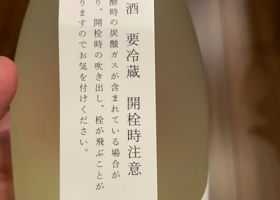 酒　要冷蔵　開栓時注意
酵時の炭酸ガスが含まれている場合が
り、開栓時の吹き出し、栓が飛ぶことが
りますのでお気を付けください。